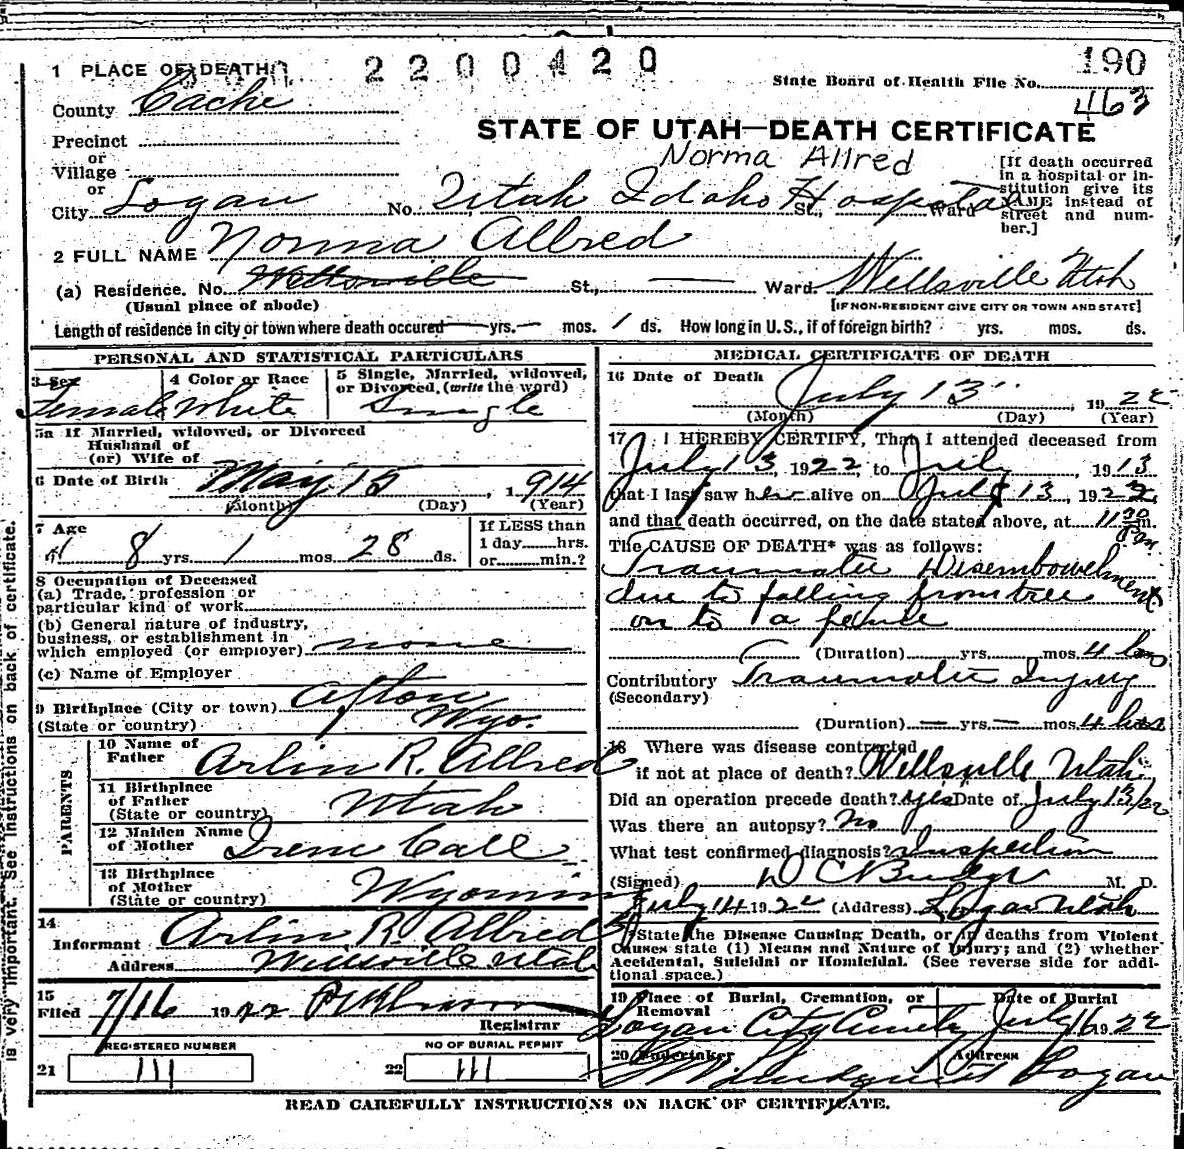 1 PLACE OF DEATH
2200420
190
State Board of Health File No.
463
County Cache
STATE OF UTAH—DEATH CERTIFICATE
Precinct
or
Village
or
Norma Allred
[If death occurred in a hospital or institution give its NAME instead of street and number.]
City Logan No. Utah Idaho Hospital St., Ward
2 FULL NAME Norma Allred
(a) Residence. No. St., Ward. Wellsville Utah
(Usual place of abode)
[IF NON-RESIDENT GIVE CITY OR TOWN AND STATE]
Length of residence in city or town where death occured — yrs. — mos. 1 ds. How long in U.S., if of foreign birth? yrs. mos. ds.
PERSONAL AND STATISTICAL PARTICULARS
3 Sex
Female
4 Color or Race
White
5 Single, Married, widowed,
or Divorced, (write the word)
Single
5a If Married, widowed, or Divorced
Husband of
(or) Wife of
6 Date of Birth May 15, 1914
(Month) (Day) (Year)
7 Age
8 yrs. 1 mos. 28 ds.
If LESS than
1 day hrs.
or min.?
8 Occupation of Deceased
(a) Trade, profession or
particular kind of work
(b) General nature of industry,
business, or establishment in
which employed (or employer) none
(c) Name of Employer
9 Birthplace (City or town) Afton
(State or country) Wyo.
PARENTS
10 Name of
Father Arlin R. Allred
11 Birthplace
of Father
(State or country) Utah
12 Maiden Name
of Mother Irene Call
13 Birthplace
of Mother
(State or country) Wyoming
14
Informant Arlin R. Allred
Address Wellsville Utah
15
Filed 7/16 1922
Registrar
REGISTERED NUMBER
21 111
NO OF BURIAL PERMIT
22 111
MEDICAL CERTIFICATE OF DEATH
16 Date of Death
July 13 1922
(Month) (Day) (Year)
17 I HEREBY CERTIFY, That I attended deceased from
July 13, 1922 to July, 1913
that I last saw her alive on July 13, 1922,
and that death occurred, on the date stated above, at 11 30 m.
Pm
The CAUSE OF DEATH* was as follows:
Traumatic Disembowelment
due to falling from tree
on to a fence
(Duration) yrs. mos. 4 hrs
Contributory Traumatic Injury
(Secondary)
(Duration) — yrs. — mos. 4 hrs
18 Where was disease contracted
if not at place of death? Wellsville Utah
Did an operation precede death? yes Date of July 13/22
Was there an autopsy? No
What test confirmed diagnosis? Inspection
(Signed) D C Budge M. D.
July 14 1922 (Address) Logan Utah
*State the Disease Causing Death, or in deaths from Violent
Causes state (1) Means and Nature of Injury; and (2) whether
Accidental, Suicidal or Homicidal. (See reverse side for additional space.)
19 Place of Burial, Cremation, or Removal
Date of Burial
Logan City Cemetery July 16 1922
20 Undertaker Address
Logan
READ CAREFULLY INSTRUCTIONS ON BACK OF CERTIFICATE.
is very important. See instructions on back of certificate.